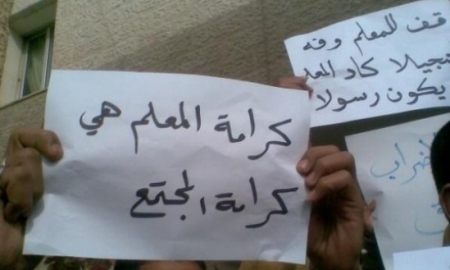 كرامة المعلم هي
كرامة المجتمع
قف للمعلم وفه
تبجيلا كاد المعلم
يكون رسولا